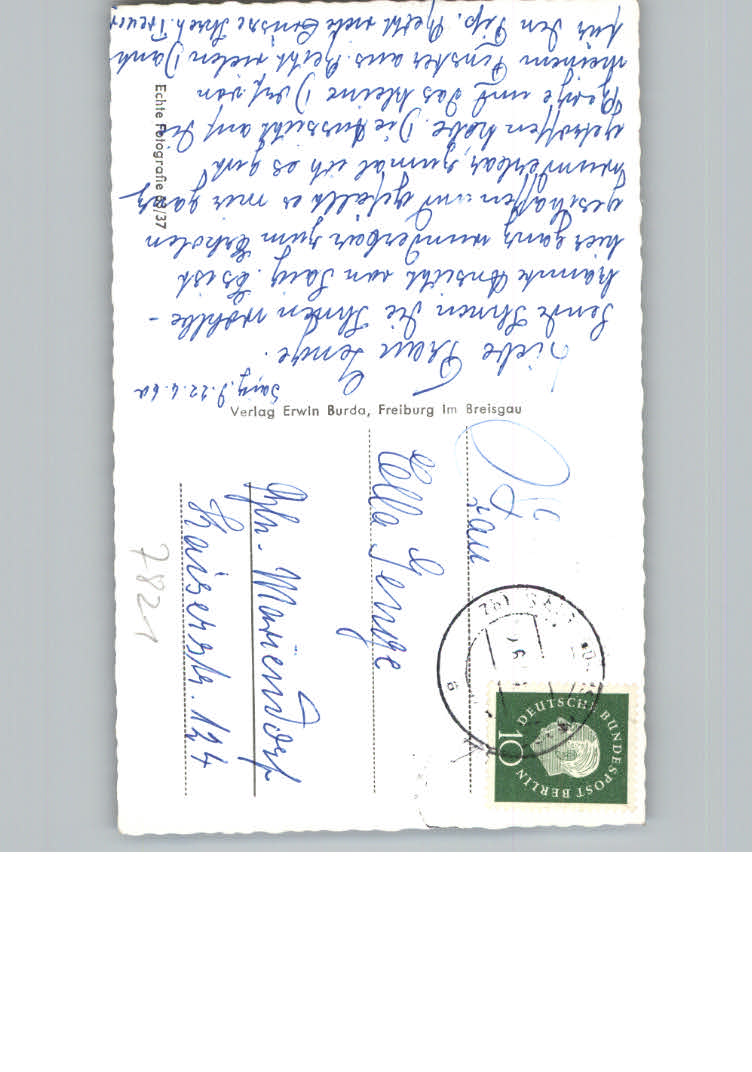 Saig, d. 22.6.60
Liebe Frau Genge.
Sende Ihnen die Ihnen wohlbe-
kannte Ansicht von Saig. Es ist
hier ganz wunderbar zum Erholen
geschaffen und gefällt es mir ganz
wunderbar, zumal ich es gut
getroffen habe. Die Aussicht auf die
Berge und das kleine Dorf von
meinem Fenster aus. Recht vielen Dank
für den Tip. Recht viele Grüsse Ihre
Echte Fotografie 68/37
Verlag Erwin Burda, Freiburg im Breisgau
Frau
Ella Genge
Bln. Mariendorf
Kaiserstr. 124
7821
DEUTSCHE BUNDESPOST BERLIN
10